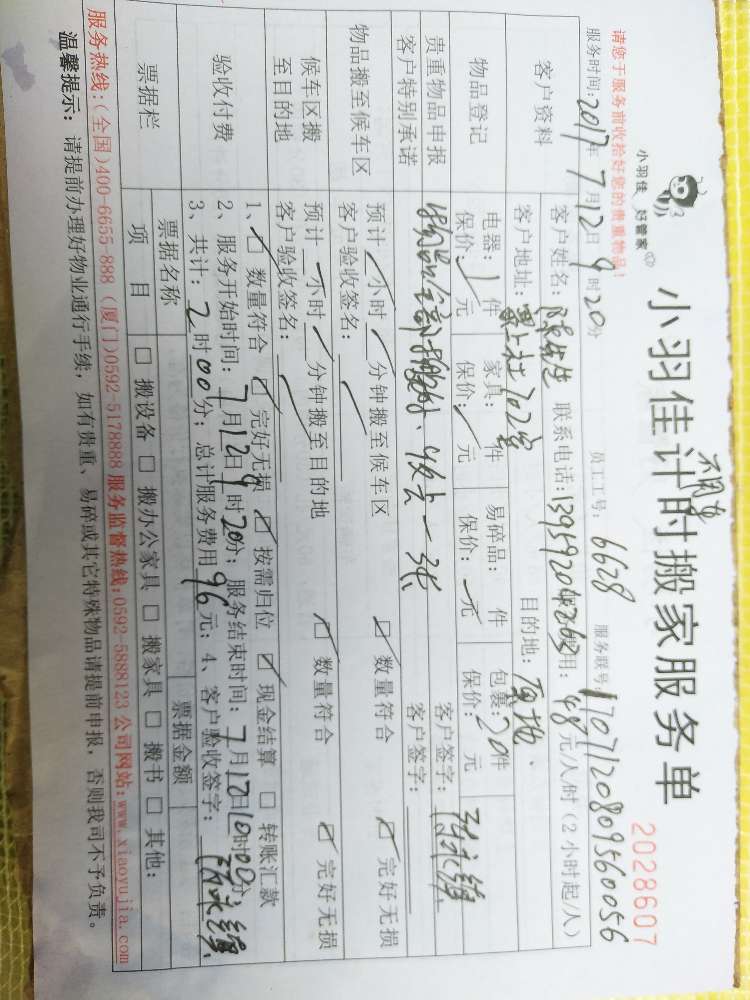 小羽佳 好管家
小羽佳计时搬家服务单
2028607
请您于服务前收拾好您的贵重物品!
服务时间: 2017年7月12日9时20分 员工工号: 6628 服务联号 1707120809560056
客户资料
客户姓名: 陈先生 联系电话: 费用: 48元/人/时(2小时起/人)
客户地址: 目的地: 原地.
物品登记
电器: 1件 家具: 件 易碎品: 件 包裹: 20件
保价: 元 保价: 元 保价: 元 保价: 元
贵重物品申报
客户特别承诺
客户签字:
客户签字:
物品搬至候车区
预计 小时 分钟搬至候车区 ☑ 数量符合 ☑ 完好无损
客户验收签名:
候车区搬
至目的地
预计 小时 分钟搬至目的地 ☑ 数量符合 ☑ 完好无损
客户验收签名:
验收付费
1、☑ 数量符合 ☑ 完好无损 ☑ 按需归位 ☑ 现金结算 □ 转账汇款
2、服务开始时间: 7月12日9时20分; 服务结束时间: 7月12日10时00分;
3、共计: 2时00分; 总计服务费用96元; 4、客户验收签字:
票据栏
票据名称 票据金额
项 目 □ 搬设备 □ 搬办公家具 □ 搬家具 □ 搬书 □ 其他:
服务热线:(全国)400-6655-888 (厦门)0592-5178888 服务监督热线:0592-5888123 公司网站:www.xiaoyujia.com
温馨提示: 请提前办理好物业通行手续, 如有贵重、易碎或其它特殊物品请提前申报, 否则我司不予负责。